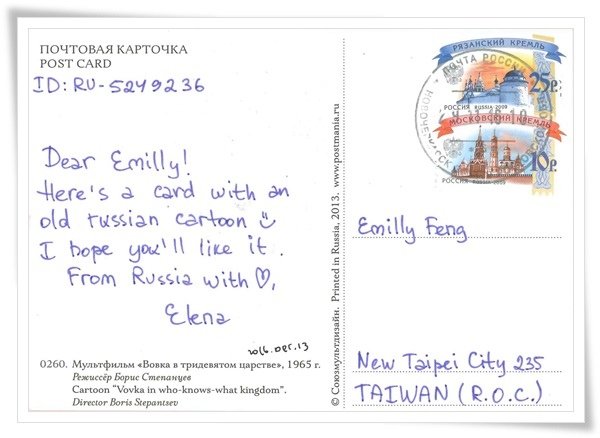 ПОЧТОВАЯ КАРТОЧКА
POST CARD
ID: RU-5249236
Dear Emilly!
Here's a card with an
old russian cartoon
I hope you'll like it.
From Russia with ♡,
Elena
2016. Dec. 13
0260. Мультфильм «Вовка в тридевятом царстве», 1965 г.
Режиссёр Борис Степанцев
Cartoon "Vovka in who-knows-what kingdom".
Director Boris Stepantsev
© Союзмультдизайн. Printed in Russia, 2013. www.postmania.ru
РЯЗАНСКИЙ КРЕМЛЬ
25р.
РОССИЯ RUSSIA 2009
МОСКОВСКИЙ КРЕМЛЬ
10р.
РОССИЯ RUSSIA 2009
ПОЧТА РОССИИ
Emilly Feng
New Taipei City 235
TAIWAN (R.O.C.)